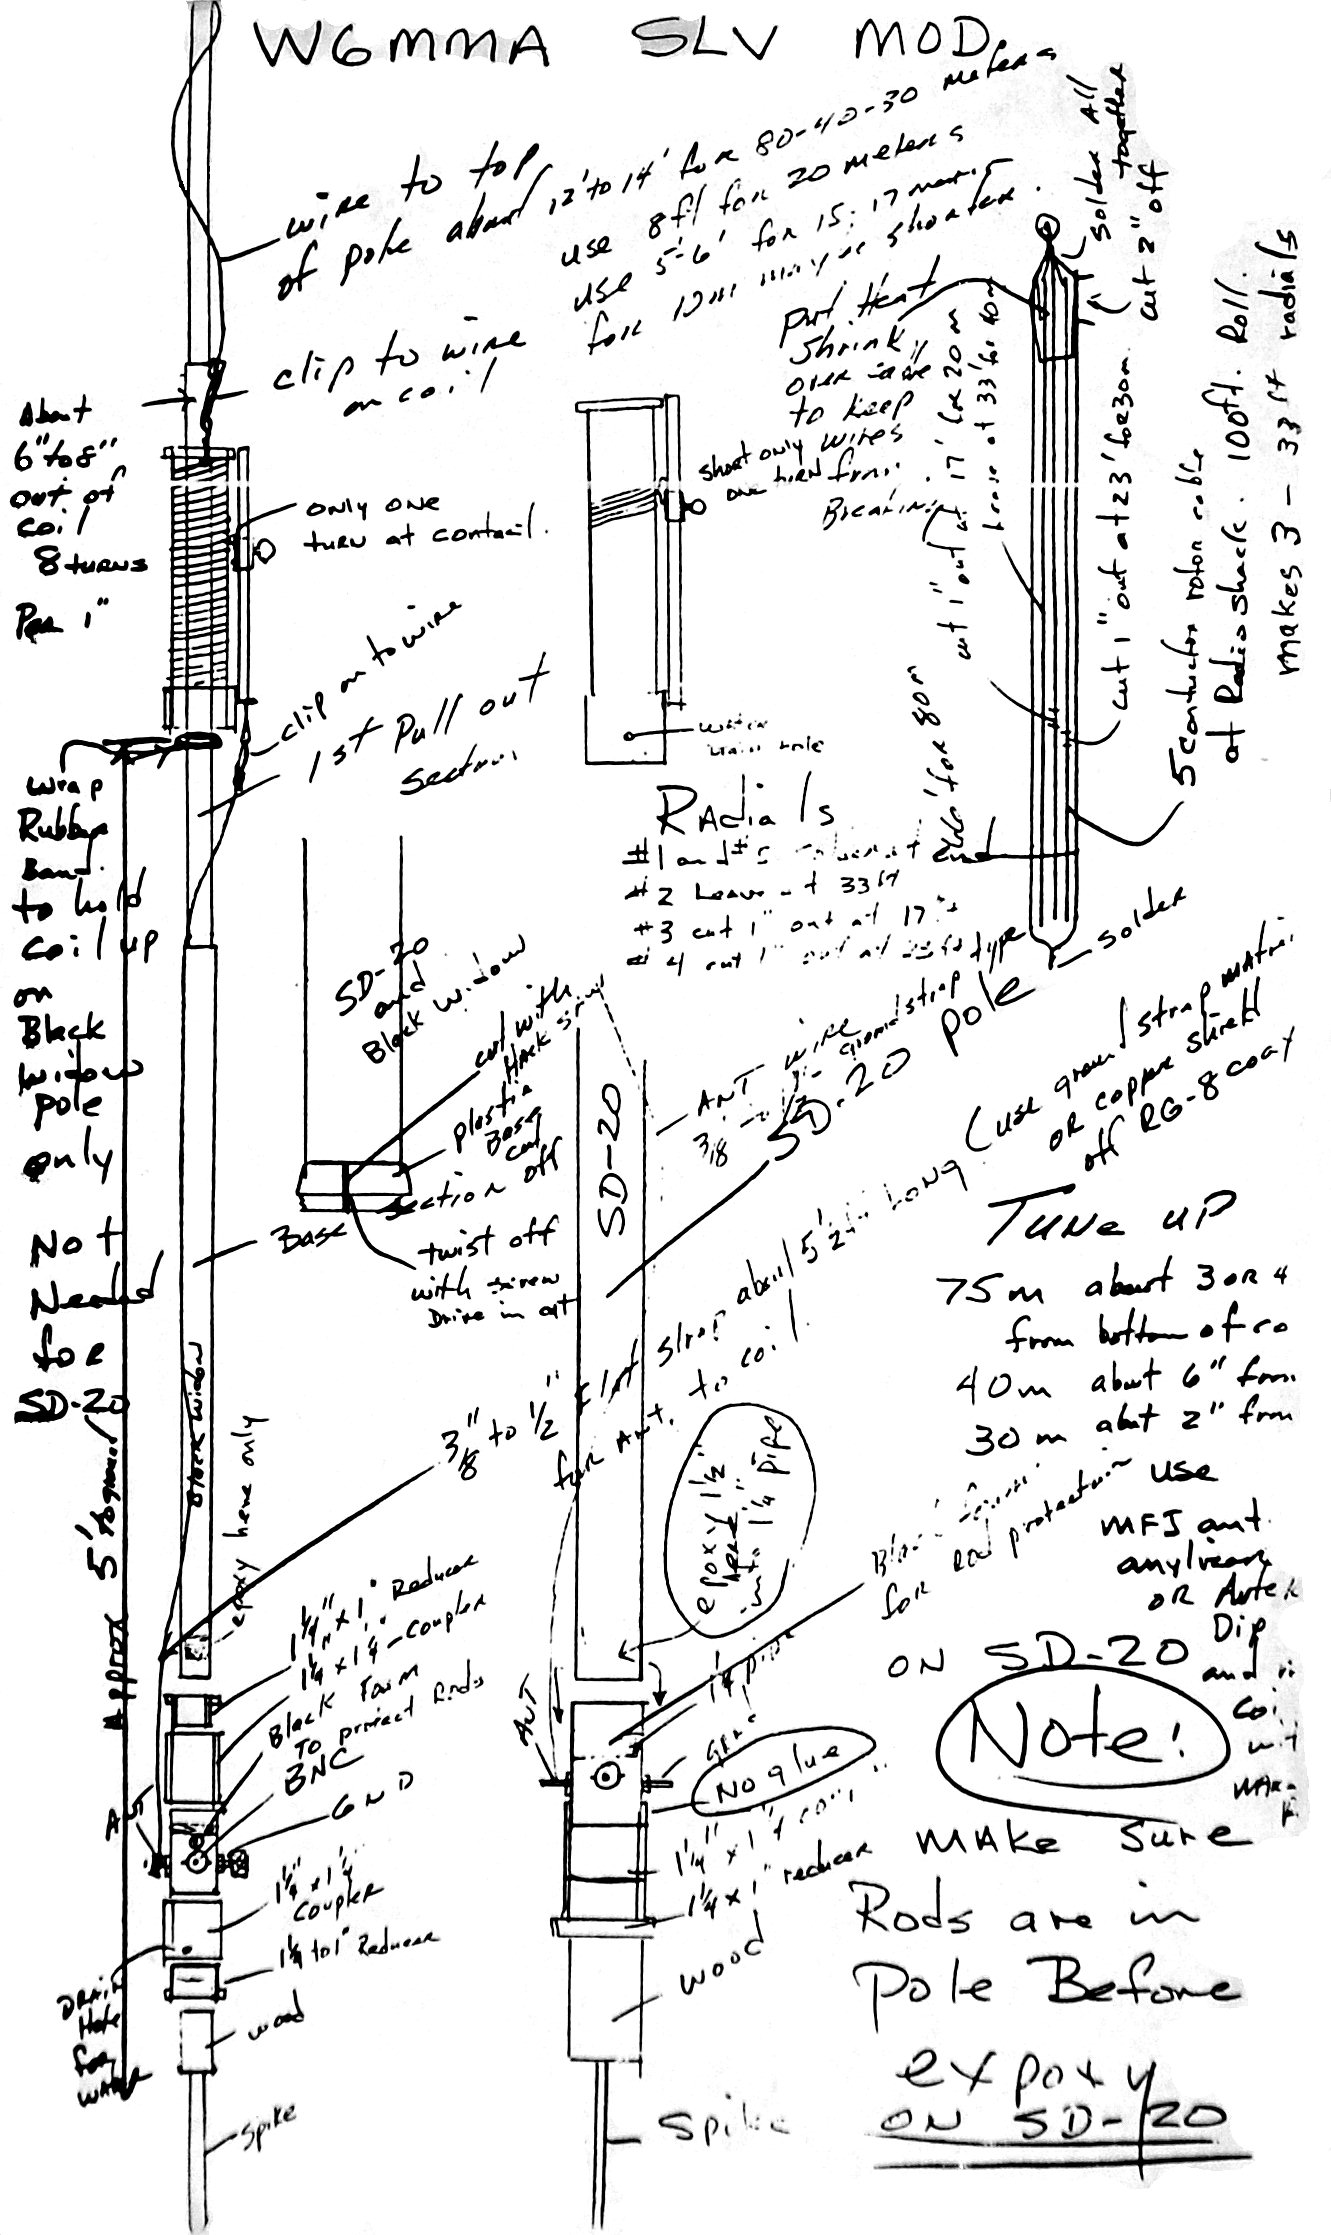 W6MMA SLV MOD
wire to top
of pole about 12' to 14' for 80-40-30 meters
use 8ft for 20 meters
use 5'-6' for 15; 17 meters
for 10m maybe shorter.
clip to wire
on coil
About
6" to 8"
out of
coil
8 turns
Per 1"
only one
turn at contact.
clip on to wire
1st Pull out
section
wrap
Rubber
Band
to hold
coil up
on
Black
widow
pole
only
Not
Needed
for
SD-20
Approx 5' to ground
short only
one turn
water
hole
Put Heat
Shrink
over
to keep
wires
from
Breaking
Solder All
together
cut 2" off
cut 1" out at 17' for 20m
at 33' for 40m
cut 1" out at 23' for 30m.
5 contuctor rotor cable
at Radio shack. 100ft. Roll.
makes 3 - 33 ft radials
for 80m
Radials
#1 and #5
#2 Leave at 33 ft
#3 cut 1" out at 17
#4 cut 1" out at
solder
SD-20
and
Black widow
cut with
Hack saw
plastic
Base
cut
section off
twist off
with screw
Base
Black widow
epoxy here only
SD-20
ANT wire
ground strap type
SD-20 pole
3/8" to 1/2" flat strap about 5 1/2 ft Long (use ground strap
or copper shield
off RG-8 coax
for Ant. to coil.
Tune up
75m about 3 or 4
from bottom of co
40m about 6" from
30m abut 2" from
use
MFJ ant.
anylizer
or Autek
Dip
and
coi
epoxy 1 1/2"
into 1 1/4" pipe
for Rod protection
1 1/4" x 1" Reducer
1 1/4 x 1 1/4 - coupler
Black Foam
To protect Rods
BNC
GND
1 1/4" x 1 1/4
coupler
1 1/4 to 1" Reducer
Drain
Hole
for
water
wood
Spike
ANT
1 1/4 pipe
No glue
1 1/4" x 1 1/4
1 1/4 x 1" reducer
wood
Spike
on SD-20
Note!
make sure
Rods are in
Pole Before
expoxy
on SD-20